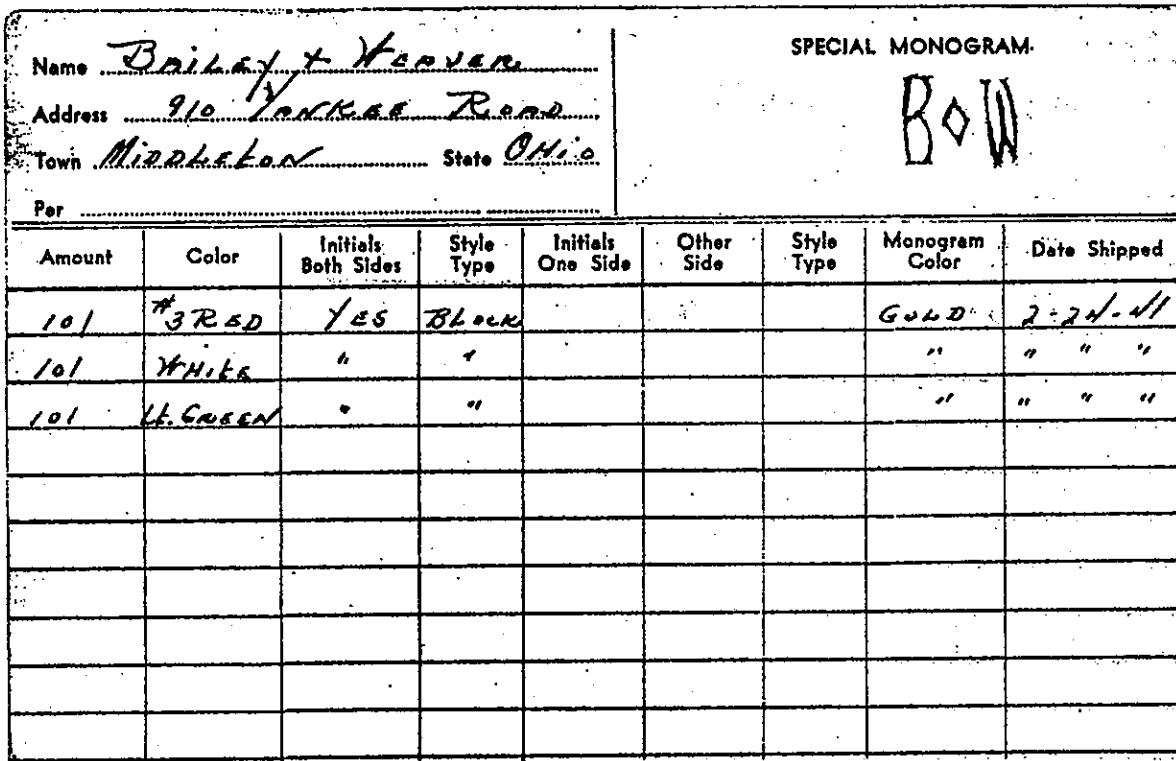 Name Bailey + Weaver
SPECIAL MONOGRAM.
Address 910 Yankee Road
B◇W
Town Middleton State Ohio
Per
Amount Color Initials Both Sides Style Type Initials One Side Other Side Style Type Monogram Color Date Shipped
101 #3 RED YES BLOCK GOLD 2-24-41
101 WHITE " " " " " "
101 Lt. GREEN " " " " " "